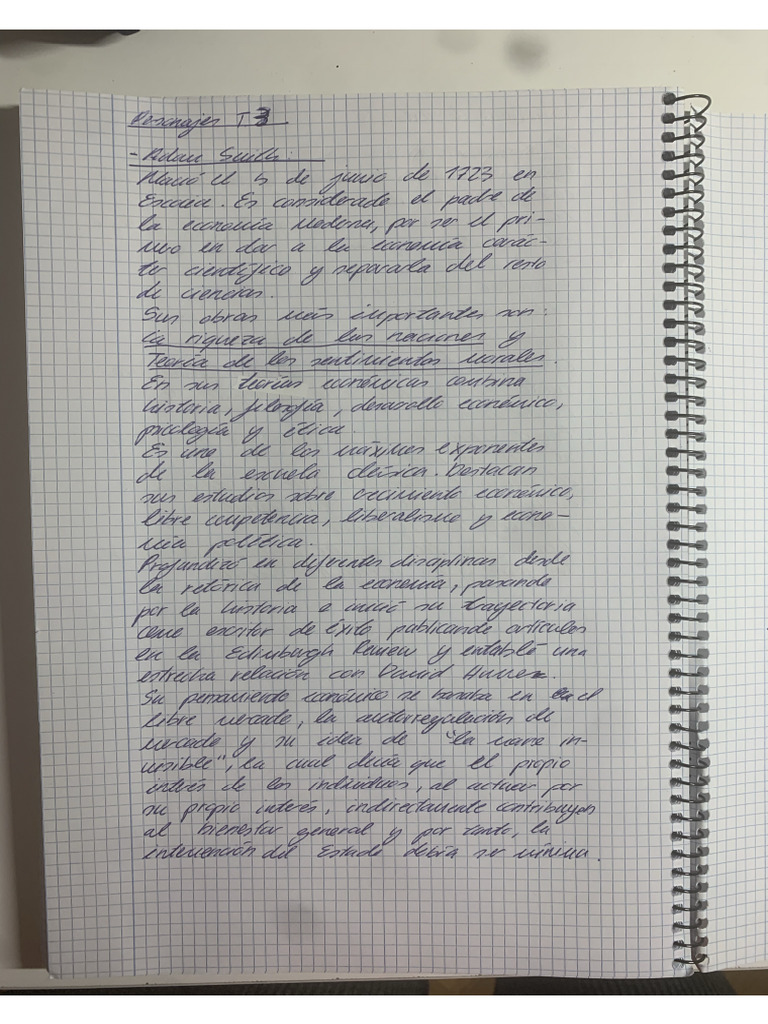 Personajes T3
- Adam Smith:
Nació el 5 de junio de 1723 en
Escocia. Es considerado el padre de
la economía moderna, por ser el pri-
mero en dar a la economía carác-
ter científico y separarla del resto
de ciencias.
Sus obras más importantes son:
La riqueza de las naciones y
Teoría de los sentimientos morales.
En sus teorías económicas combina
historia, filosofía, desarrollo económico,
psicología y ética.
Es uno de los máximos exponentes
de la escuela clásica. Destacan
sus estudios sobre crecimiento económico,
libre competencia, liberalismo y econo-
mía política.
Profundizó en diferentes disciplinas desde
la retórica de la economía, pasando
por la historia e inició su trayectoria
como escritor de éxito publicando artículos
en la Edinburgh Review y entabló una
estrecha relación con David
Su pensamiento económico se basaba en el
libre mercado, la autorregulación de
mercado y su idea de "la mano in-
visible", la cual decía que el propio
interés de los individuos, al actuar por
su propio interés, indirectamente contribuyen
al bienestar general y por tanto, la
intervención del Estado debía ser mínima.